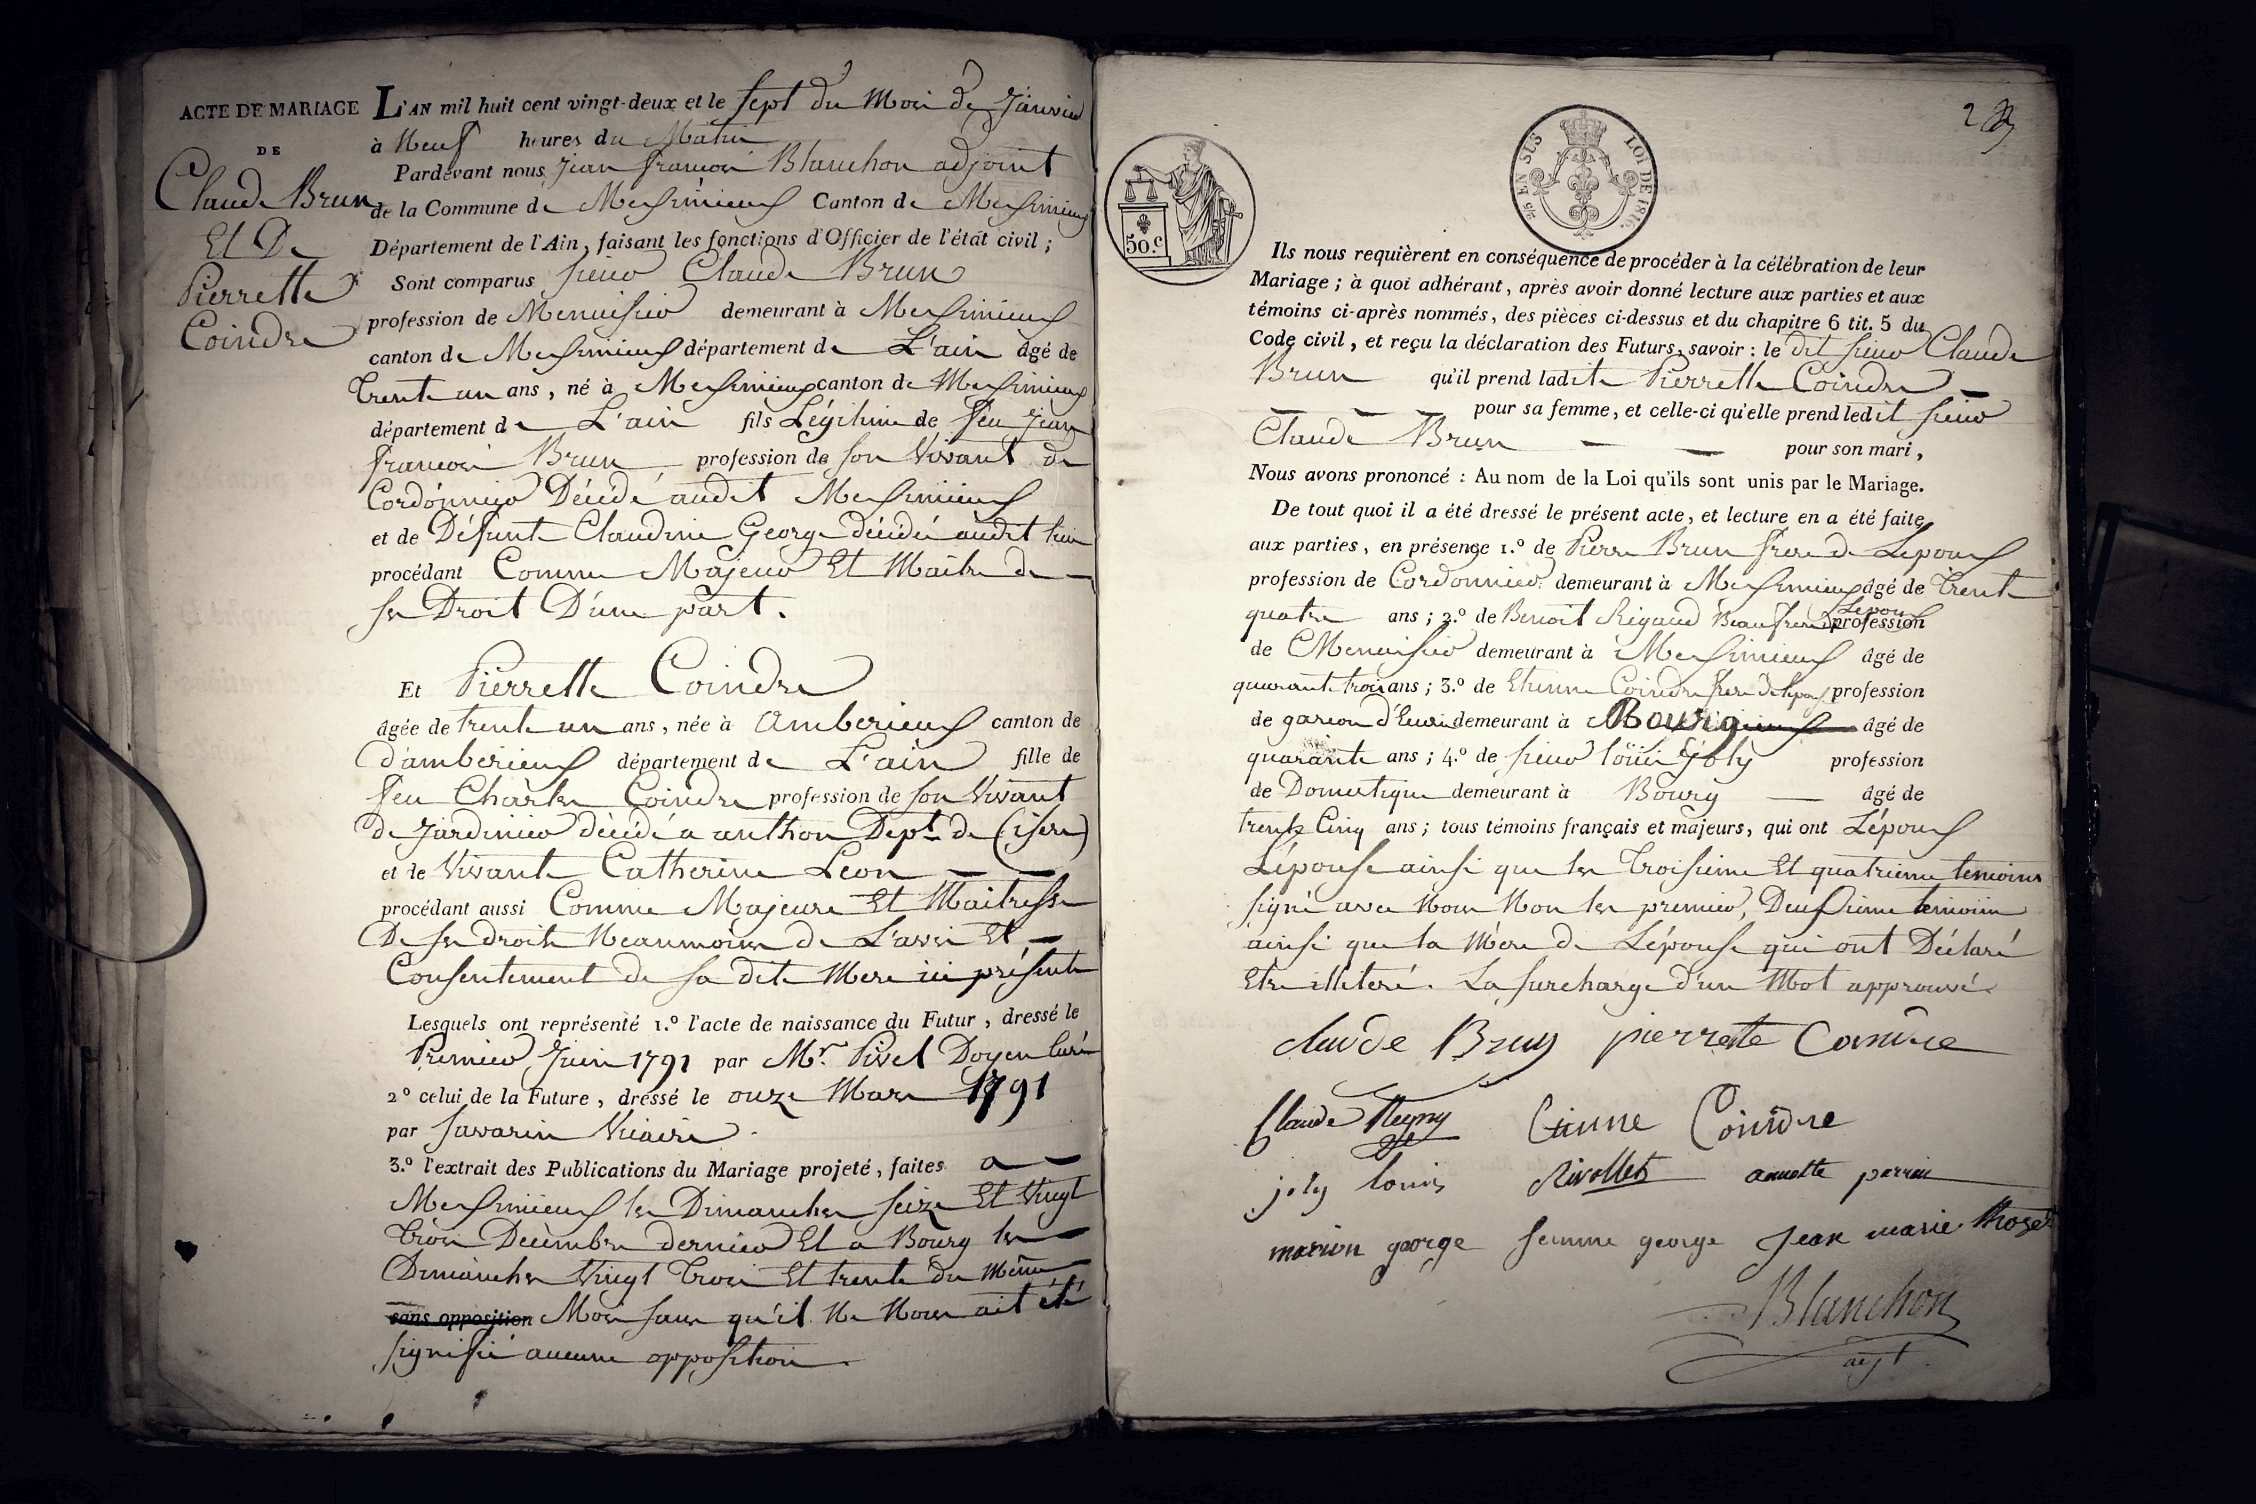 ACTE DE MARIAGE
DE
Claude Brun
Et De
Pierrette
Coindre
L'AN mil huit cent vingt-deux et le sept du Mois de Janvier
à Neuf heures du Matin
Pardevant nous, Jean françois Blanchon adjoint
de la Commune de Messimieux Canton de Messimieux
Département de l'Ain, faisant les fonctions d'Officier de l'état civil ;
Sont comparus sieur Claude Brun
profession de Menuisier demeurant à Messimieux
canton de Messimieux département de L'ain âgé de
trente un ans, né à Messimieux canton de Messimieux
département de L'ain fils Légitime de feu Jean
françois Brun profession de son Vivant de
Cordonnier Décédé audit Messimieux
et de Défunte Claudine George décédée audit lieu
procédant Comme Majeur Et Maitre de
ses Droit D'une part.
Et Pierrette Coindre
âgée de trente un ans, née à Amberieux canton de
d'amberieux département de L'ain fille de
feu Charles Coindre profession de son Vivant
de Jardinier décédé a anthon Dept. de (isere)
et de Vivante Catherine Leon
procédant aussi Comme Majeure Et Maitresse
De ses droits Neanmoins de L'avis Et
Consentement de sa dite Mere ici présente
Lesquels ont représenté 1.º l'acte de naissance du Futur, dressé le
Premier Juin 1791 par Mr. Pivel Doyen Curé
2º celui de la Future, dressé le onze Mars 1791
par Savarin Vicaire.
3.º l'extrait des Publications du Mariage projeté, faites a
Messimieux les Dimanches seize Et Vingt
trois Décembre dernier Et a Bourg les
Dimanches Vingt trois Et trente du même
sans opposition Mois sans qu'il Ne Nous ait été
signifié aucune opposition.
2
50.c
45 EN SUS
LOI DE 1816.
Ils nous requièrent en conséquence de procéder à la célébration de leur
Mariage ; à quoi adhérant, après avoir donné lecture aux parties et aux
témoins ci-après nommés, des pièces ci-dessus et du chapitre 6 tit. 5 du
Code civil, et reçu la déclaration des Futurs, savoir : le dit sieur Claude
Brun qu'il prend ladite Pierrette Coindre
pour sa femme, et celle-ci qu'elle prend ledit sieur
Claude Brun pour son mari,
Nous avons prononcé : Au nom de la Loi qu'ils sont unis par le Mariage.
De tout quoi il a été dressé le présent acte, et lecture en a été faite
aux parties, en présence 1.º de Pierre Brun frere de Lepoux
profession de Cordonnier demeurant à Messimieux âgé de trente
quatre ans ; 2.º de Benoit Rigaud Beau frere de Lepoux profession
de Menuisier demeurant à Messimieux âgé de
quarante trois ans ; 3.º de Etienne Coindre frere de lepouse profession
de garçon d'Ecurie demeurant à Bourg âgé de
quarante ans ; 4.º de sieur loüis Joly profession
de Domestique demeurant à Bourg âgé de
trente Cinq ans ; tous témoins français et majeurs, qui ont Lépoux
Lépouse ainsi que les troisieme Et quatrieme temoins
signé avec Nous Non les premier, Deuxieme temoin
ainsi que la Mère de Lépouse qui ont Déclaré
Etre illeteré. La surcharge d'un Mot approuvé.
claude Brun pierrette Coindre
Claude Etienne Coindre
joly louis Rivollet annette perrin
marion george femme george Jean marie
Blanchon
adjt.